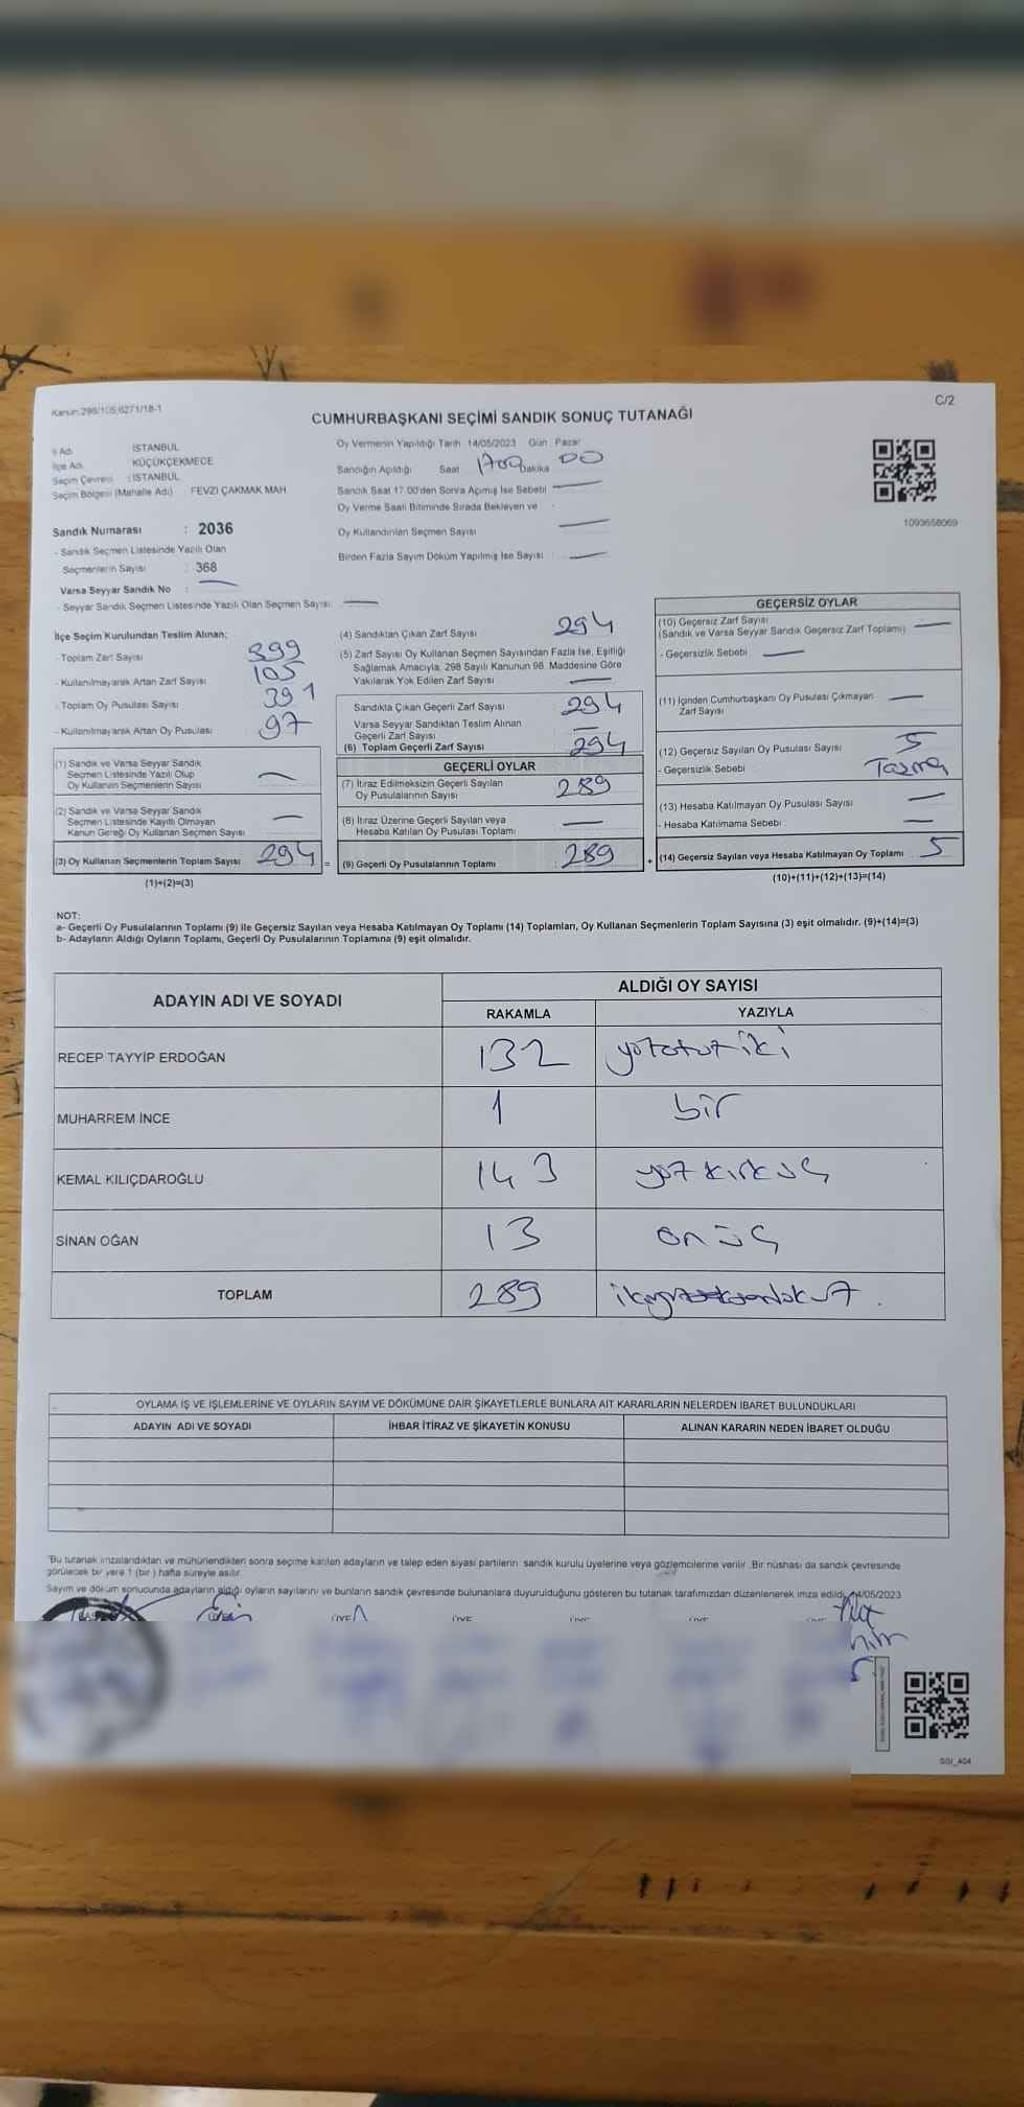 Kanun:298/105,6271/18-1
C/2
CUMHURBAŞKANI SEÇİMİ SANDIK SONUÇ TUTANAĞI
İl Adı İSTANBUL
İlçe Adı KÜÇÜKÇEKMECE
Seçim Çevresi : İSTANBUL
Seçim Bölgesi (Mahalle Adı) FEVZİ ÇAKMAK MAH
Sandık Numarası : 2036
- Sandık Seçmen Listesinde Yazılı Olan
Seçmenlerin Sayısı : 368
Varsa Seyyar Sandık No : —
- Seyyar Sandık Seçmen Listesinde Yazılı Olan Seçmen Sayısı —
Oy Vermenin Yapıldığı Tarih 14/05/2023 Gün Pazar
Sandığın Açıldığı Saat 1700 Dakika 00
Sandık Saat 17.00'den Sonra Açılmış İse Sebebi —
Oy Verme Saati Bitiminde Sırada Bekleyen ve
Oy Kullandırılan Seçmen Sayısı —
Birden Fazla Sayım Döküm Yapılmış İse Sayısı —
1093658069
İlçe Seçim Kurulundan Teslim Alınan;
- Toplam Zarf Sayısı 399
- Kullanılmayarak Artan Zarf Sayısı 105
- Toplam Oy Pusulası Sayısı 391
- Kullanılmayarak Artan Oy Pusulası 97
(1) Sandık ve Varsa Seyyar Sandık
Seçmen Listesinde Yazılı Olup
Oy Kullanan Seçmenlerin Sayısı —
(2) Sandık ve Varsa Seyyar Sandık
Seçmen Listesinde Kayıtlı Olmayan
Kanun Gereği Oy Kullanan Seçmen Sayısı —
(3) Oy Kullanan Seçmenlerin Toplam Sayısı 294 =
(1)+(2)=(3)
(4) Sandıktan Çıkan Zarf Sayısı 294
(5) Zarf Sayısı Oy Kullanan Seçmen Sayısından Fazla İse, Eşitliği
Sağlamak Amacıyla, 298 Sayılı Kanunun 98. Maddesine Göre
Yakılarak Yok Edilen Zarf Sayısı —
Sandıkta Çıkan Geçerli Zarf Sayısı 294
Varsa Seyyar Sandıktan Teslim Alınan
Geçerli Zarf Sayısı —
(6) Toplam Geçerli Zarf Sayısı 294
GEÇERLİ OYLAR
(7) İtiraz Edilmeksizin Geçerli Sayılan
Oy Pusulalarının Sayısı 289
(8) İtiraz Üzerine Geçerli Sayılan veya
Hesaba Katılan Oy Pusulası Toplamı —
(9) Geçerli Oy Pusulalarının Toplamı 289 +
GEÇERSİZ OYLAR
(10) Geçersiz Zarf Sayısı
(Sandık ve Varsa Seyyar Sandık Geçersiz Zarf Toplamı) —
- Geçersizlik Sebebi —
(11) İçinden Cumhurbaşkanı Oy Pusulası Çıkmayan
Zarf Sayısı —
(12) Geçersiz Sayılan Oy Pusulası Sayısı 5
- Geçersizlik Sebebi Taşma
(13) Hesaba Katılmayan Oy Pusulası Sayısı —
- Hesaba Katılmama Sebebi : —
(14) Geçersiz Sayılan veya Hesaba Katılmayan Oy Toplamı 5
(10)+(11)+(12)+(13)=(14)
NOT:
a- Geçerli Oy Pusulalarının Toplamı (9) ile Geçersiz Sayılan veya Hesaba Katılmayan Oy Toplamı (14) Toplamları, Oy Kullanan Seçmenlerin Toplam Sayısına (3) eşit olmalıdır. (9)+(14)=(3)
b- Adayların Aldığı Oyların Toplamı, Geçerli Oy Pusulalarının Toplamına (9) eşit olmalıdır.
ADAYIN ADI VE SOYADI ALDIĞI OY SAYISI
RAKAMLA YAZIYLA
RECEP TAYYİP ERDOĞAN 132 yüzotuziki
MUHARREM İNCE 1 bir
KEMAL KILIÇDAROĞLU 143 yüz kırküç
SİNAN OĞAN 13 onüç
TOPLAM 289 ikiyüzseksendokuz
OYLAMA İŞ VE İŞLEMLERİNE VE OYLARIN SAYIM VE DÖKÜMÜNE DAİR ŞİKAYETLERLE BUNLARA AİT KARARLARIN NELERDEN İBARET BULUNDUKLARI
ADAYIN ADI VE SOYADI İHBAR İTİRAZ VE ŞİKAYETİN KONUSU ALINAN KARARIN NEDEN İBARET OLDUĞU
"Bu tutanak imzalandıktan ve mühürlendikten sonra seçime katılan adayların ve talep eden siyasi partilerin sandık kurulu üyelerine veya gözlemcilerine verilir. Bir nüshası da sandık çevresinde
görülecek bir yere 1 (bir) hafta süreyle asılır.
Sayım ve döküm sonucunda adayların aldığı oyların sayılarını ve bunların sandık çevresinde bulunanlara duyurulduğunu gösteren bu tutanak tarafımızdan düzenlenerek imza edildi. 14/05/2023